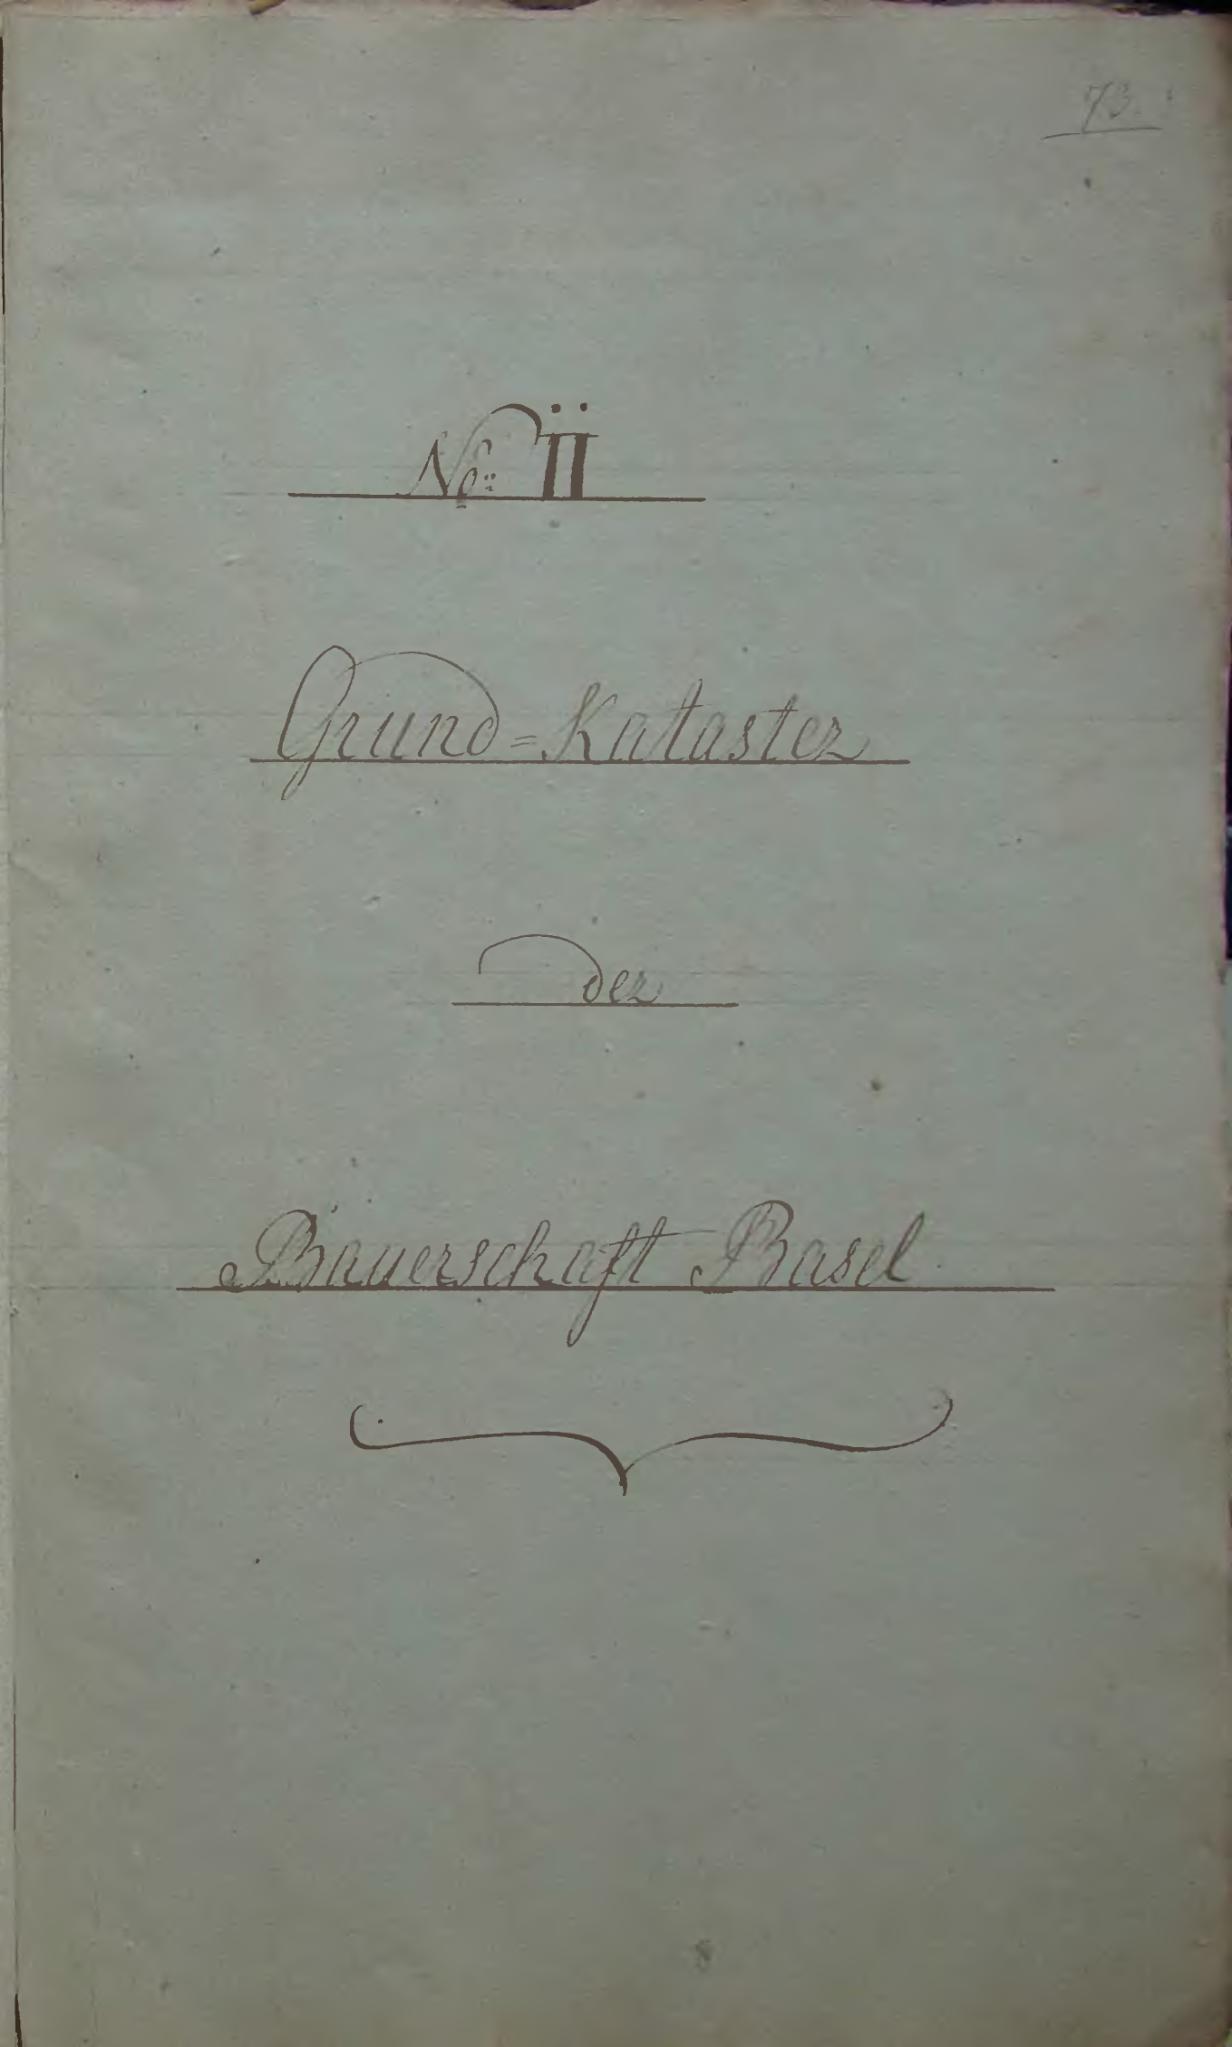 73.
No: II
Grund=Kataster
der
Bauerschaft Basel.